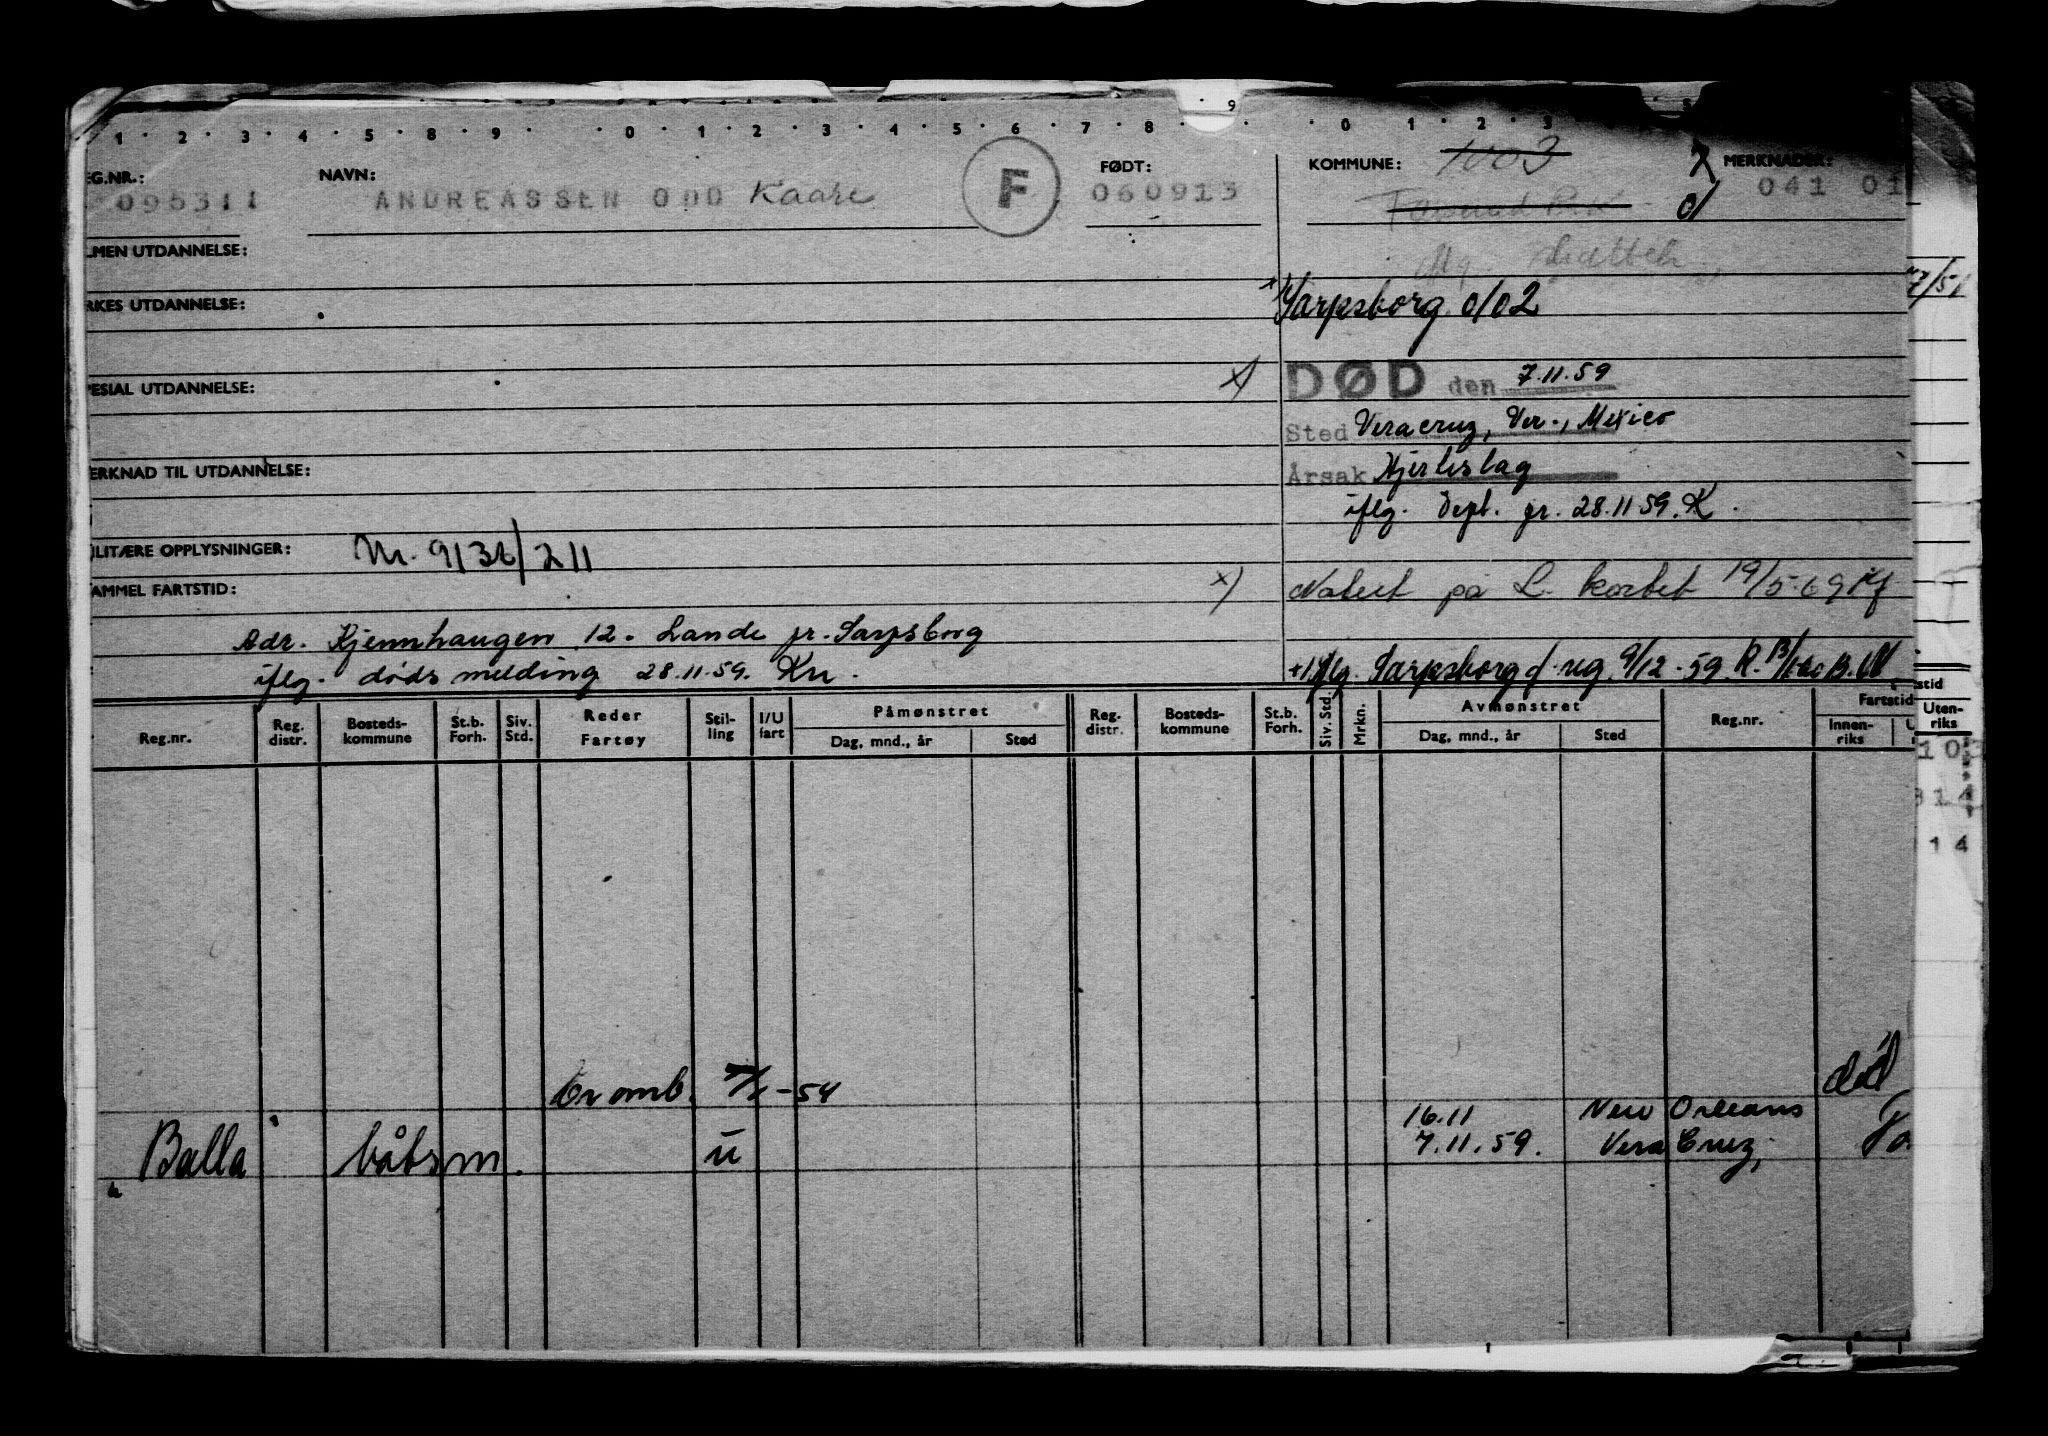 1 2 3 4 5 8 9 0 1 2 3 4 5 6 7 8 9 0 1 2 3
EG.NR.: NAVN: F FØDT: KOMMUNE: 1003 MERKNADER:
095311 ANDREASSEN ODD Kaare 060913 041 01
LMEN UTDANNELSE:
RKES UTDANNELSE:
Sarpsborg 0102
ESIAL UTDANNELSE: x) DØD den 7.11.59
Sted Veracruz, Ver., Mexico
ERKNAD TIL UTDANNELSE: Årsak Hjerteslag
iflg. Dept. gr. 28.11.59. K.
ILITÆRE OPPLYSNINGER: Nr. 9132/211
AMMEL FARTSTID: x) Notert på L. kortet 19/5-69
Adr. Kjennhaugen 12. Lande pr. Sarpsborg
iflg. dødsmelding 28.11.59. Kn. iflg. Sarpsborg f.reg. 9/12-59
Reg.nr. Reg. distr. Bosteds-kommune St.b. Forh. Siv. Std. Reder Fartøy Stil-ling I/U fart Påmønstret Dag, mnd., år Sted Reg. distr. Bosteds-kommune St.b. Forh. Siv. Std. Mrkn. Avmønstret Dag, mnd., år Sted Reg.nr. Fartstid Innen-riks
stid Uten-riks
10
314
14
Cromb. -54 død
16.11 New Orleans
Balla båtsm. u 7.11.59. Vera Cruz,